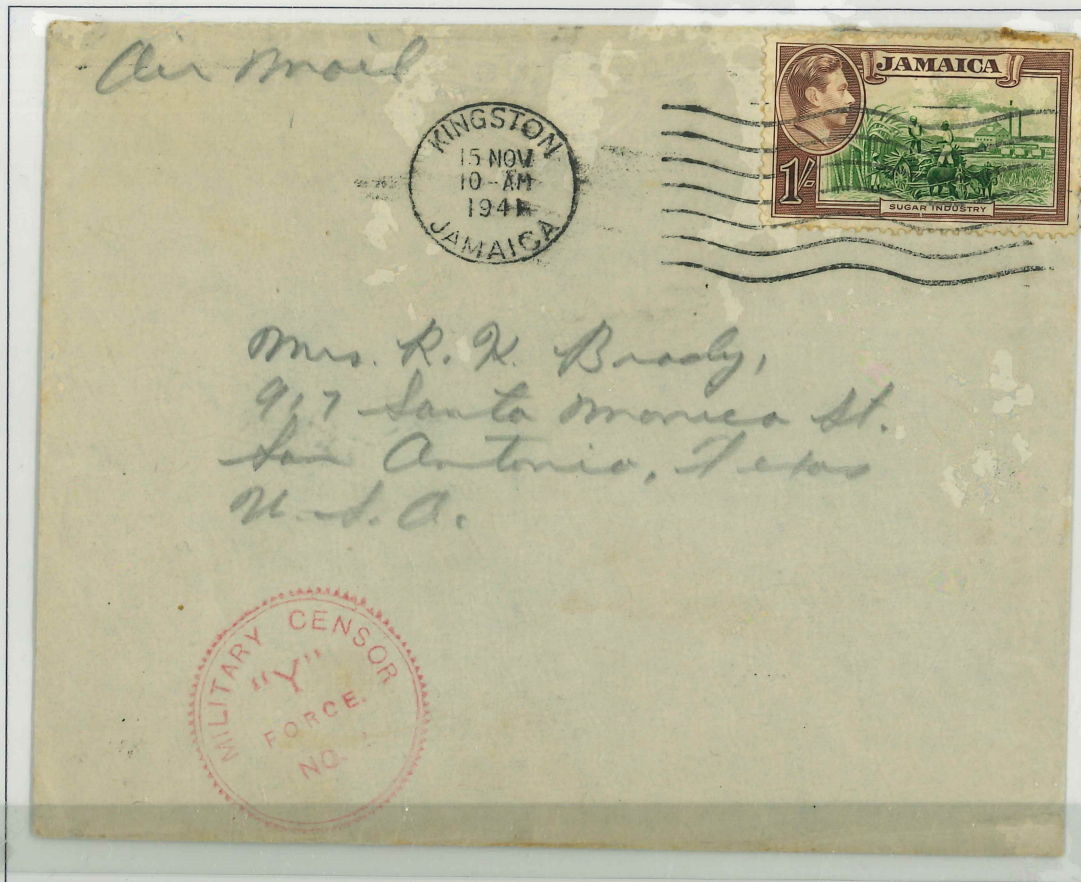 Air Mail
KINGSTON
15 NOV
10-AM
1941
JAMAICA
JAMAICA
1/-
SUGAR INDUSTRY
Mrs. R. K. Brady,
917 Santa Monica St.
San Antonio, Texas
U.S.A.
MILITARY CENSOR
"Y"
FORCE.
NO.